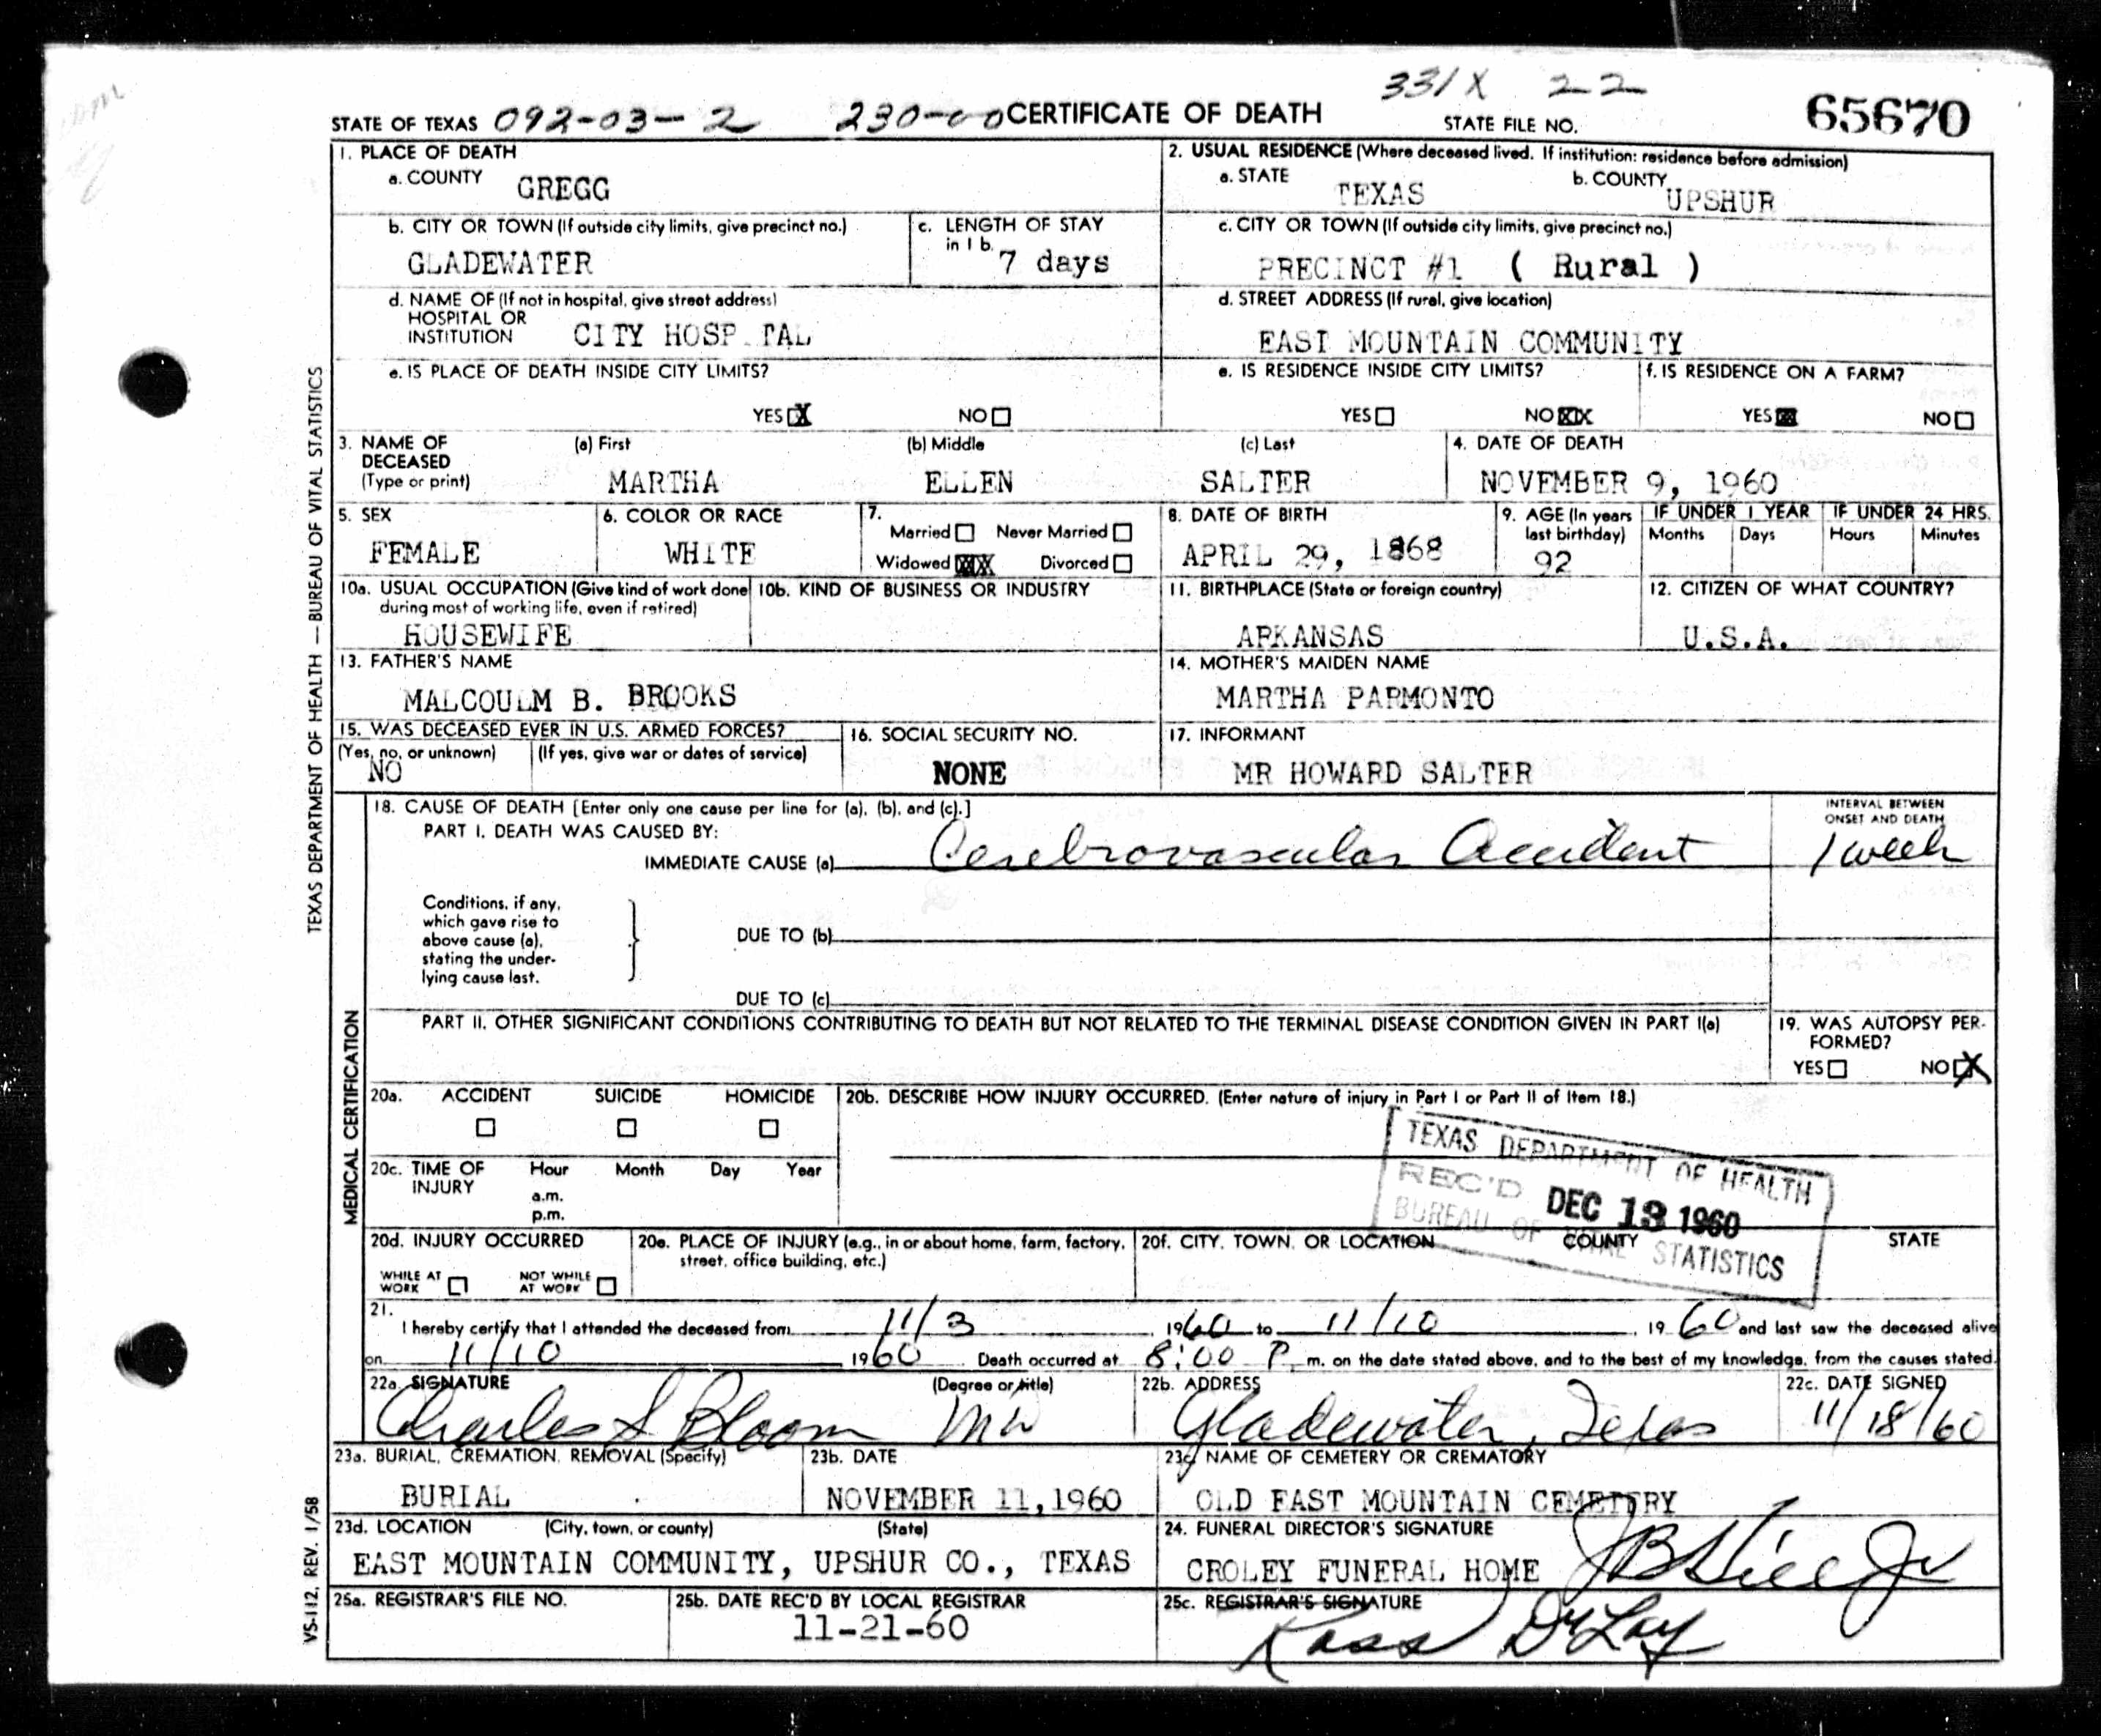 331X 22
STATE OF TEXAS 092-03-2 230-00 CERTIFICATE OF DEATH STATE FILE NO. 65670
1. PLACE OF DEATH
a. COUNTY GREGG
2. USUAL RESIDENCE (Where deceased lived. If institution: residence before admission)
a. STATE TEXAS b. COUNTY UPSHUR
b. CITY OR TOWN (If outside city limits, give precinct no.)
GLADEWATER
c. LENGTH OF STAY in 1 b.
7 days
c. CITY OR TOWN (If outside city limits, give precinct no.)
PRECINCT #1 ( Rural )
d. NAME OF (If not in hospital, give street address)
HOSPITAL OR
INSTITUTION CITY HOSP TAL
d. STREET ADDRESS (If rural, give location)
EAST MOUNTAIN COMMUNITY
e. IS PLACE OF DEATH INSIDE CITY LIMITS?
YES X NO
e. IS RESIDENCE INSIDE CITY LIMITS?
YES NO XX
f. IS RESIDENCE ON A FARM?
YES X NO
3. NAME OF DECEASED (Type or print)
(a) First (b) Middle (c) Last
MARTHA ELLEN SALTER
4. DATE OF DEATH
NOVEMBER 9, 1960
5. SEX
FEMALE
6. COLOR OR RACE
WHITE
7. Married Never Married
Widowed XX Divorced
8. DATE OF BIRTH
APRIL 29, 1868
9. AGE (In years last birthday)
92
IF UNDER 1 YEAR
Months Days
IF UNDER 24 HRS.
Hours Minutes
10a. USUAL OCCUPATION (Give kind of work done
during most of working life, even if retired)
HOUSEWIFE
10b. KIND OF BUSINESS OR INDUSTRY
11. BIRTHPLACE (State or foreign country)
ARKANSAS
12. CITIZEN OF WHAT COUNTRY?
U.S.A.
13. FATHER'S NAME
MALCOULM B. BROOKS
14. MOTHER'S MAIDEN NAME
MARTHA PARMONTO
15. WAS DECEASED EVER IN U.S. ARMED FORCES?
(Yes, no, or unknown) (If yes, give war or dates of service)
NO
16. SOCIAL SECURITY NO.
NONE
17. INFORMANT
MR HOWARD SALTER
18. CAUSE OF DEATH [Enter only one cause per line for (a), (b), and (c).]
PART I. DEATH WAS CAUSED BY:
IMMEDIATE CAUSE (a) Cerebrovascular Accident
INTERVAL BETWEEN
ONSET AND DEATH
1 week
Conditions, if any,
which gave rise to
above cause (a),
stating the under-
lying cause last.
DUE TO (b)
DUE TO (c)
PART II. OTHER SIGNIFICANT CONDITIONS CONTRIBUTING TO DEATH BUT NOT RELATED TO THE TERMINAL DISEASE CONDITION GIVEN IN PART I(a)
19. WAS AUTOPSY PER-
FORMED?
YES NO X
20a. ACCIDENT SUICIDE HOMICIDE
20b. DESCRIBE HOW INJURY OCCURRED. (Enter nature of injury in Part I or Part II of Item 18.)
20c. TIME OF INJURY
Hour Month Day Year
a.m.
p.m.
TEXAS DEPARTMENT OF HEALTH
REC'D DEC 13 1960
BUREAU OF VITAL STATISTICS
20d. INJURY OCCURRED
WHILE AT WORK NOT WHILE AT WORK
20e. PLACE OF INJURY (e.g., in or about home, farm, factory,
street, office building, etc.)
20f. CITY, TOWN, OR LOCATION COUNTY STATE
21.
I hereby certify that I attended the deceased from 11/3, 1960 to 11/10, 1960 and last saw the deceased alive
on 11/10 1960. Death occurred at 8:00 P m. on the date stated above, and to the best of my knowledge, from the causes stated.
22a. SIGNATURE (Degree or title)
Charles S Bloom MD
22b. ADDRESS
Gladewater, Texas
22c. DATE SIGNED
11/18/60
23a. BURIAL, CREMATION, REMOVAL (Specify)
BURIAL
23b. DATE
NOVEMBER 11, 1960
23c. NAME OF CEMETERY OR CREMATORY
OLD EAST MOUNTAIN CEMETERY
23d. LOCATION (City, town, or county) (State)
EAST MOUNTAIN COMMUNITY, UPSHUR CO., TEXAS
24. FUNERAL DIRECTOR'S SIGNATURE
CROLEY FUNERAL HOME JB Hill Jr
25a. REGISTRAR'S FILE NO.
25b. DATE REC'D BY LOCAL REGISTRAR
11-21-60
25c. REGISTRAR'S SIGNATURE
Kass DeLay
TEXAS DEPARTMENT OF HEALTH — BUREAU OF VITAL STATISTICS
MEDICAL CERTIFICATION
VS-112, REV. 1/58